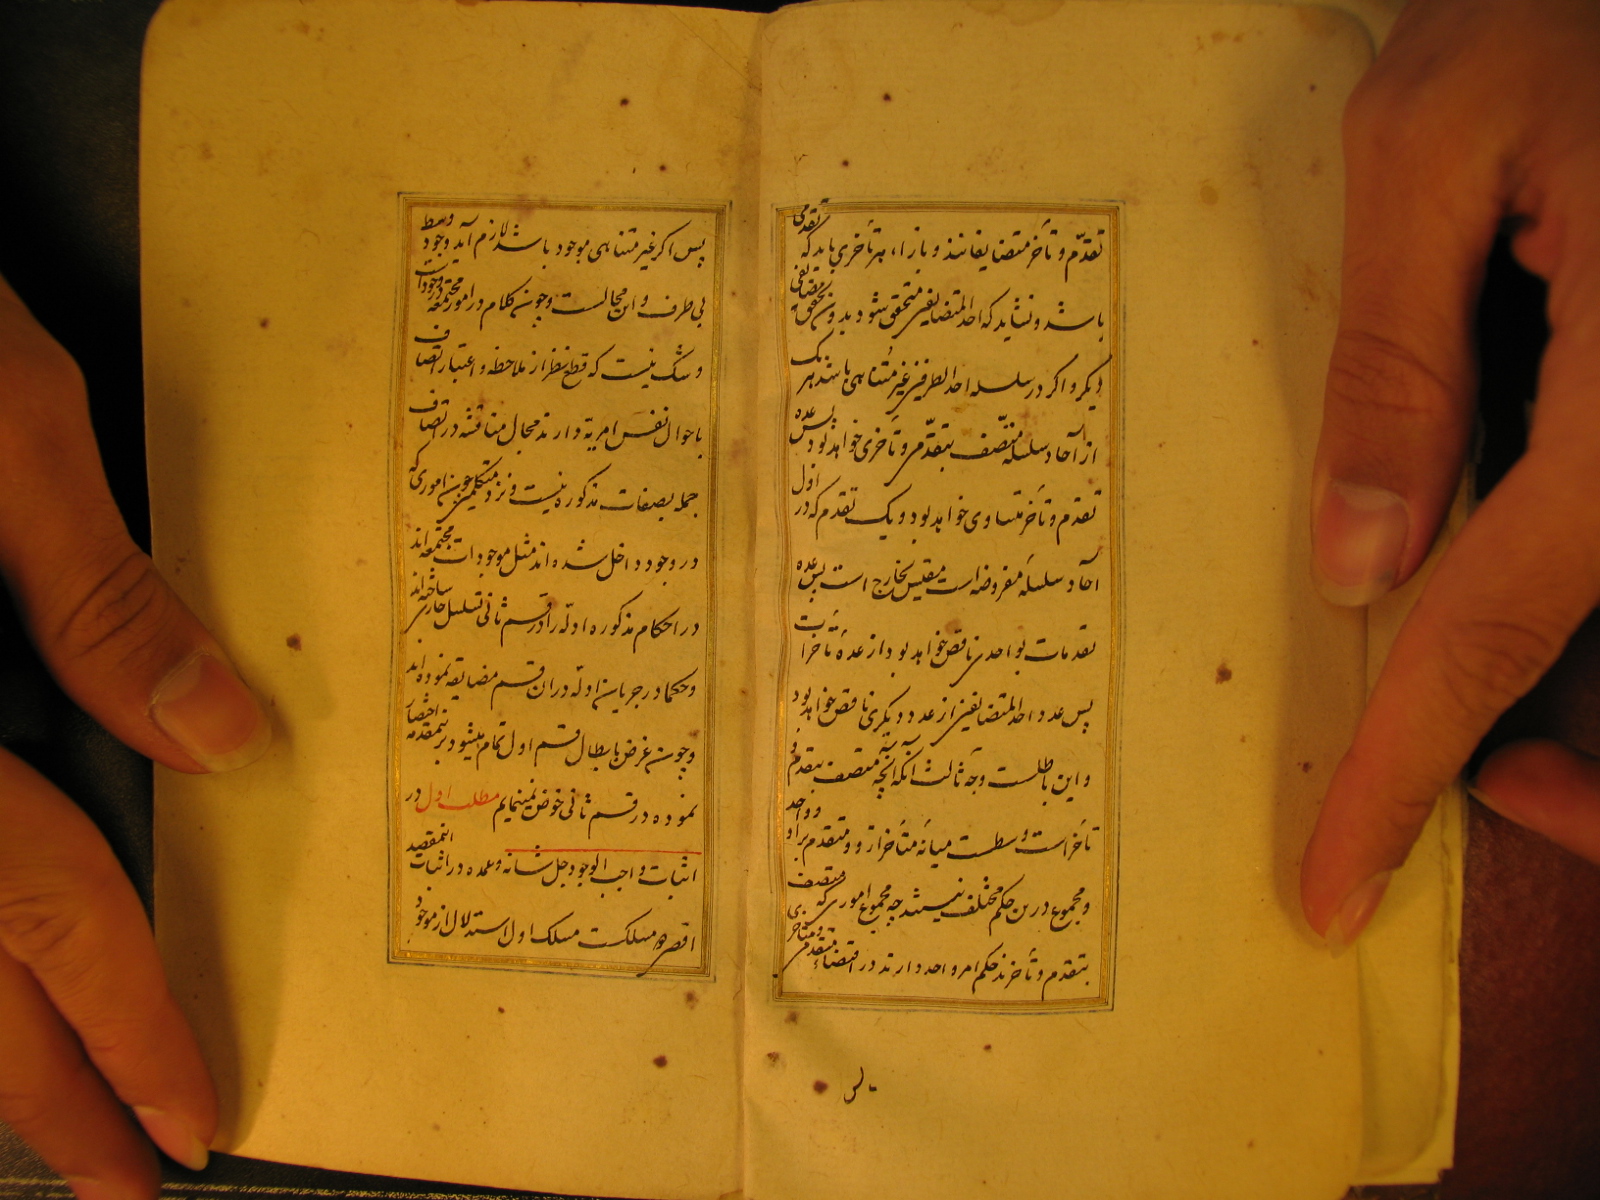 تقدّم و تأخر متضایفانند و بازاء هر تأخری باید که تقدمی
باشد و نشاید که احد المتضایفین متحقق شود بدون تحقق مضایفی
دیگر و اگر در سلسله احد الطرفین غیر متناهی باشد هر یک
از آحاد سلسله متّصف بتقدّمی و تأخری خواهد بود پس عده
تقدم و تأخر متساوی خواهد بود و یک تقدم که در اول
آحاد سلسله مفروضه است مقیس بخارج است پس عده
تقدمات بواحدی ناقص خواهد بود از عده تأخرات
پس عدد احد المتضایفین از عدد دیگری ناقص خواهد بود
و این باطلست وجه ثالث آنکه آنچه متصف بتقدم و
تأخر است وسطست میانه متأخر ازو و متقدم برو و واحد
و مجموع درین حکم مختلف نیستند چه مجموع اموری که متصف
بتقدم و تأخرند حکم امر واحد دارند در اقتضاء متقدمی و متأخری
پس
پس اگر غیر متناهی موجود باشد لازم آید وجود وسط
بی طرف و این محالست و چون کلام در امور مجتمعه در وجودات
و شک نیست که قطع نظر از ملاحظه و اعتبار اتصاف
باحوال نفس امریه دارند مجال مناقشه در اتصاف
جمله بصفات مذکوره نیست و نزد متکلمین چون اموری که
در وجود داخل شده اند مثل موجودات مجتمعه اند
در احکام مذکوره ادله را در قسم ثانی تسلسل جاری ساخته اند
و حکما در جریان ادله در ان قسم مضایقه نموده اند
و چون غرض بابطال قسم اول تمام میشود برینمقدمه اختصار
نموده در قسم ثانی خوض نمینمایم مطلب اول در
اثبات واجب الوجود جل شانه و عمده در اثبات اینمقصد
اقصی دو مسلکست مسلک اول استدلال از موجود